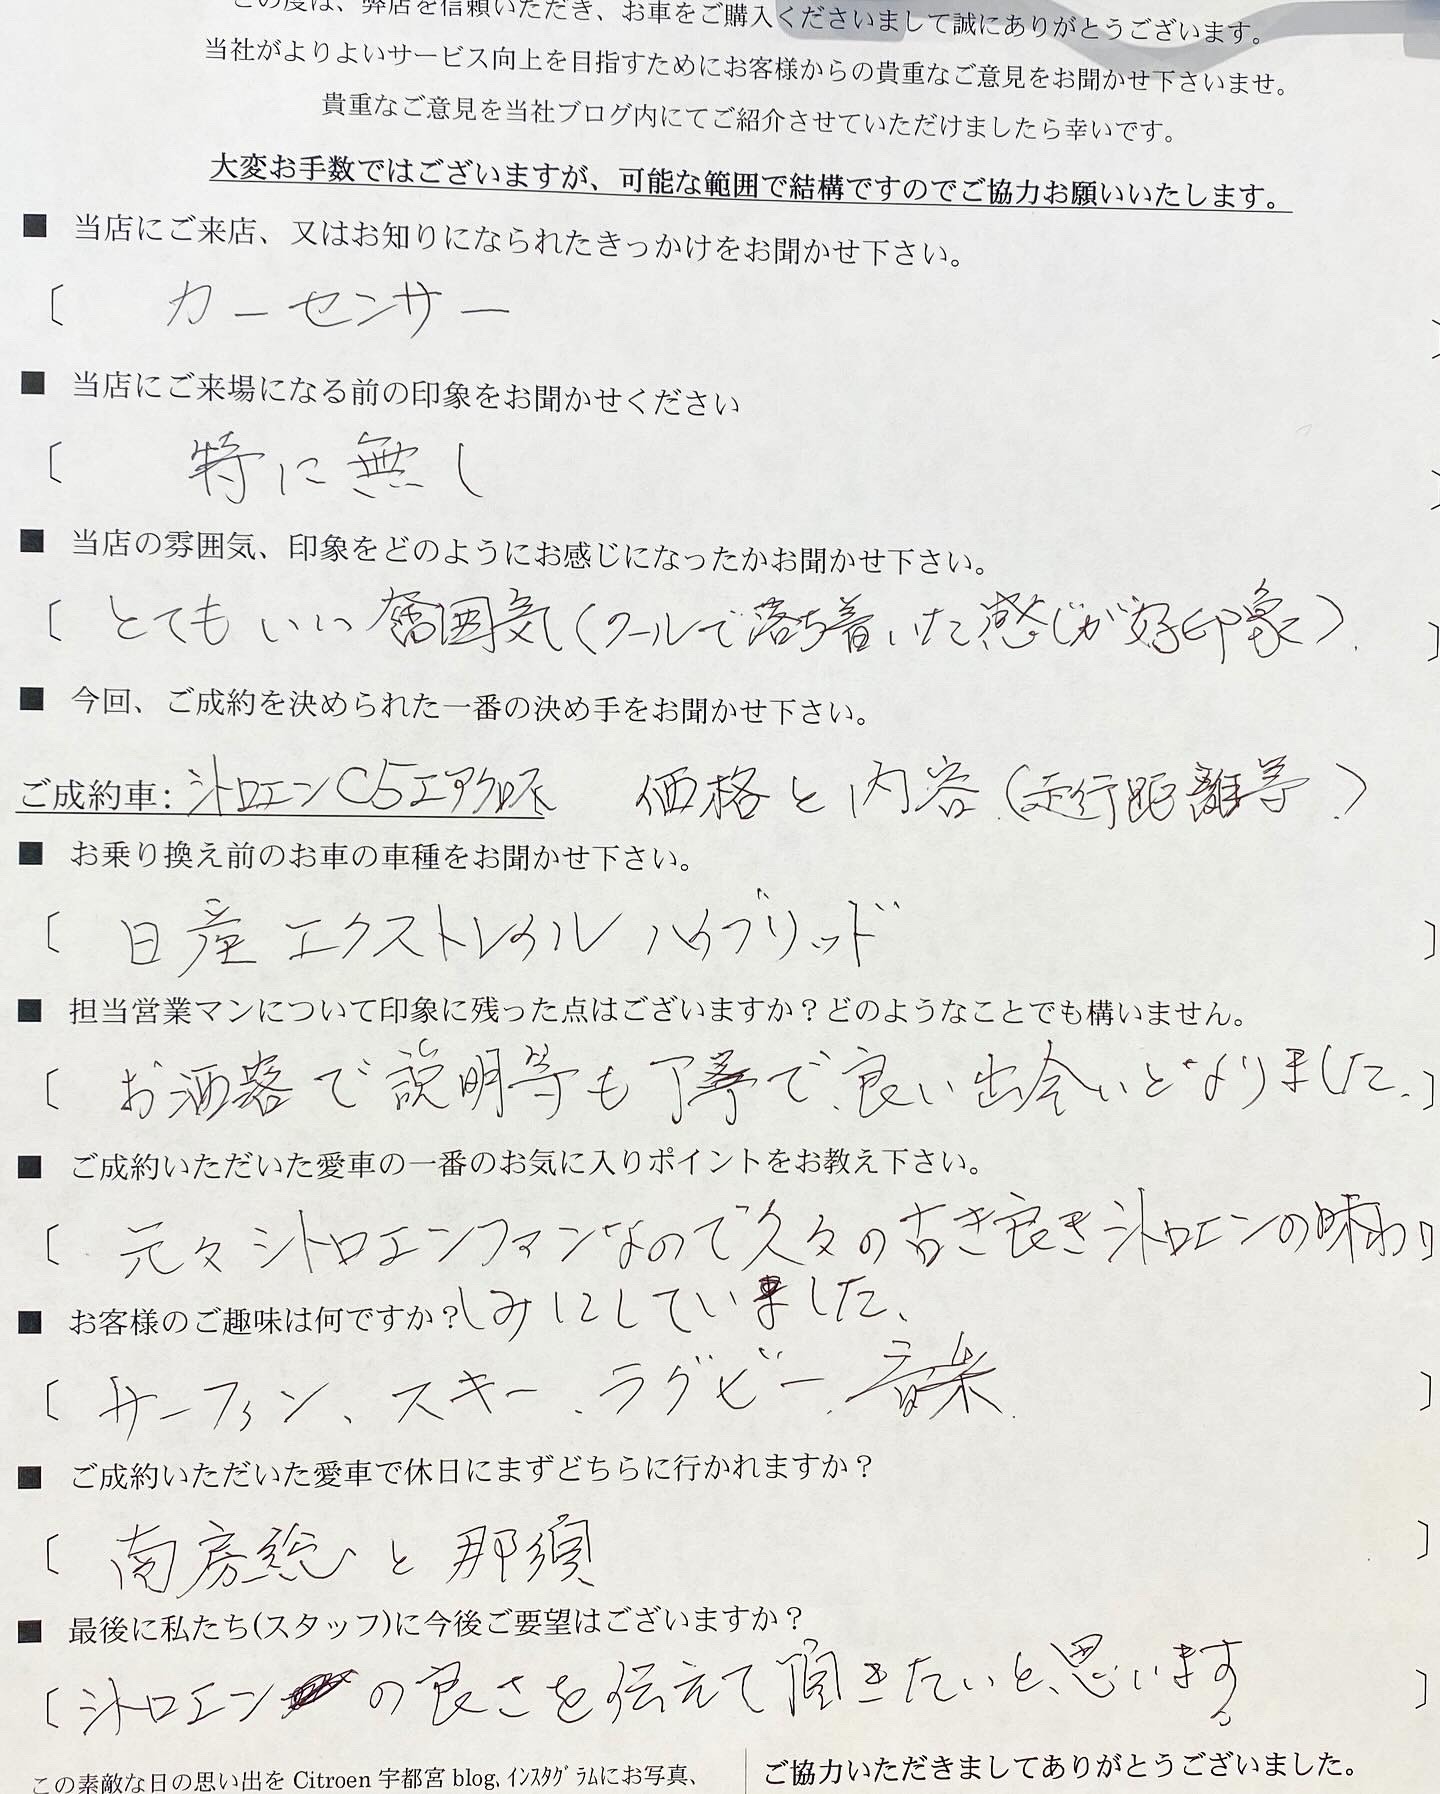 この度は、弊店を信頼いただき、お車をご購入くださいまして誠にありがとうございます。
当社がよりよいサービス向上を目指すためにお客様からの貴重なご意見をお聞かせ下さいませ。
貴重なご意見を当社ブログ内にてご紹介させていただけましたら幸いです。
大変お手数ではございますが、可能な範囲で結構ですのでご協力お願いいたします。
■ 当店にご来店、又はお知りになられたきっかけをお聞かせ下さい。
〔 カーセンサー 〕
■ 当店にご来場になる前の印象をお聞かせください
〔 特に無し 〕
■ 当店の雰囲気、印象をどのようにお感じになったかお聞かせ下さい。
〔 とてもいい雰囲気(クールで落ち着いた感じが好印象). 〕
■ 今回、ご成約を決められた一番の決め手をお聞かせ下さい。
ご成約車: シトロエンC5エアクロス 価格と内容.(走行距離等.)
■ お乗り換え前のお車の車種をお聞かせ下さい。
〔 日産 エクストレイル ハイブリッド 〕
■ 担当営業マンについて印象に残った点はございますか？どのようなことでも構いません。
〔 お洒落で説明等も丁寧で、良い出会いとなりました、 〕
■ ご成約いただいた愛車の一番のお気に入りポイントをお教え下さい。
〔 元々シトロエンファンなので久々の古き良きシトロエンの味わり
■ お客様のご趣味は何ですか？しみにしていました、
〔 サーフィン、スキー、ラグビー、音楽. 〕
■ ご成約いただいた愛車で休日にまずどちらに行かれますか？
〔 南房総と那須 〕
■ 最後に私たち(スタッフ)に今後ご要望はございますか？
〔 シトロエンの良さを伝えて頂きたいと、思います。 〕
この素敵な日の思い出を Citroen 宇都宮 blog、ｲﾝｽﾀｸﾞﾗﾑにお写真、
ご協力いただきましてありがとうございました。